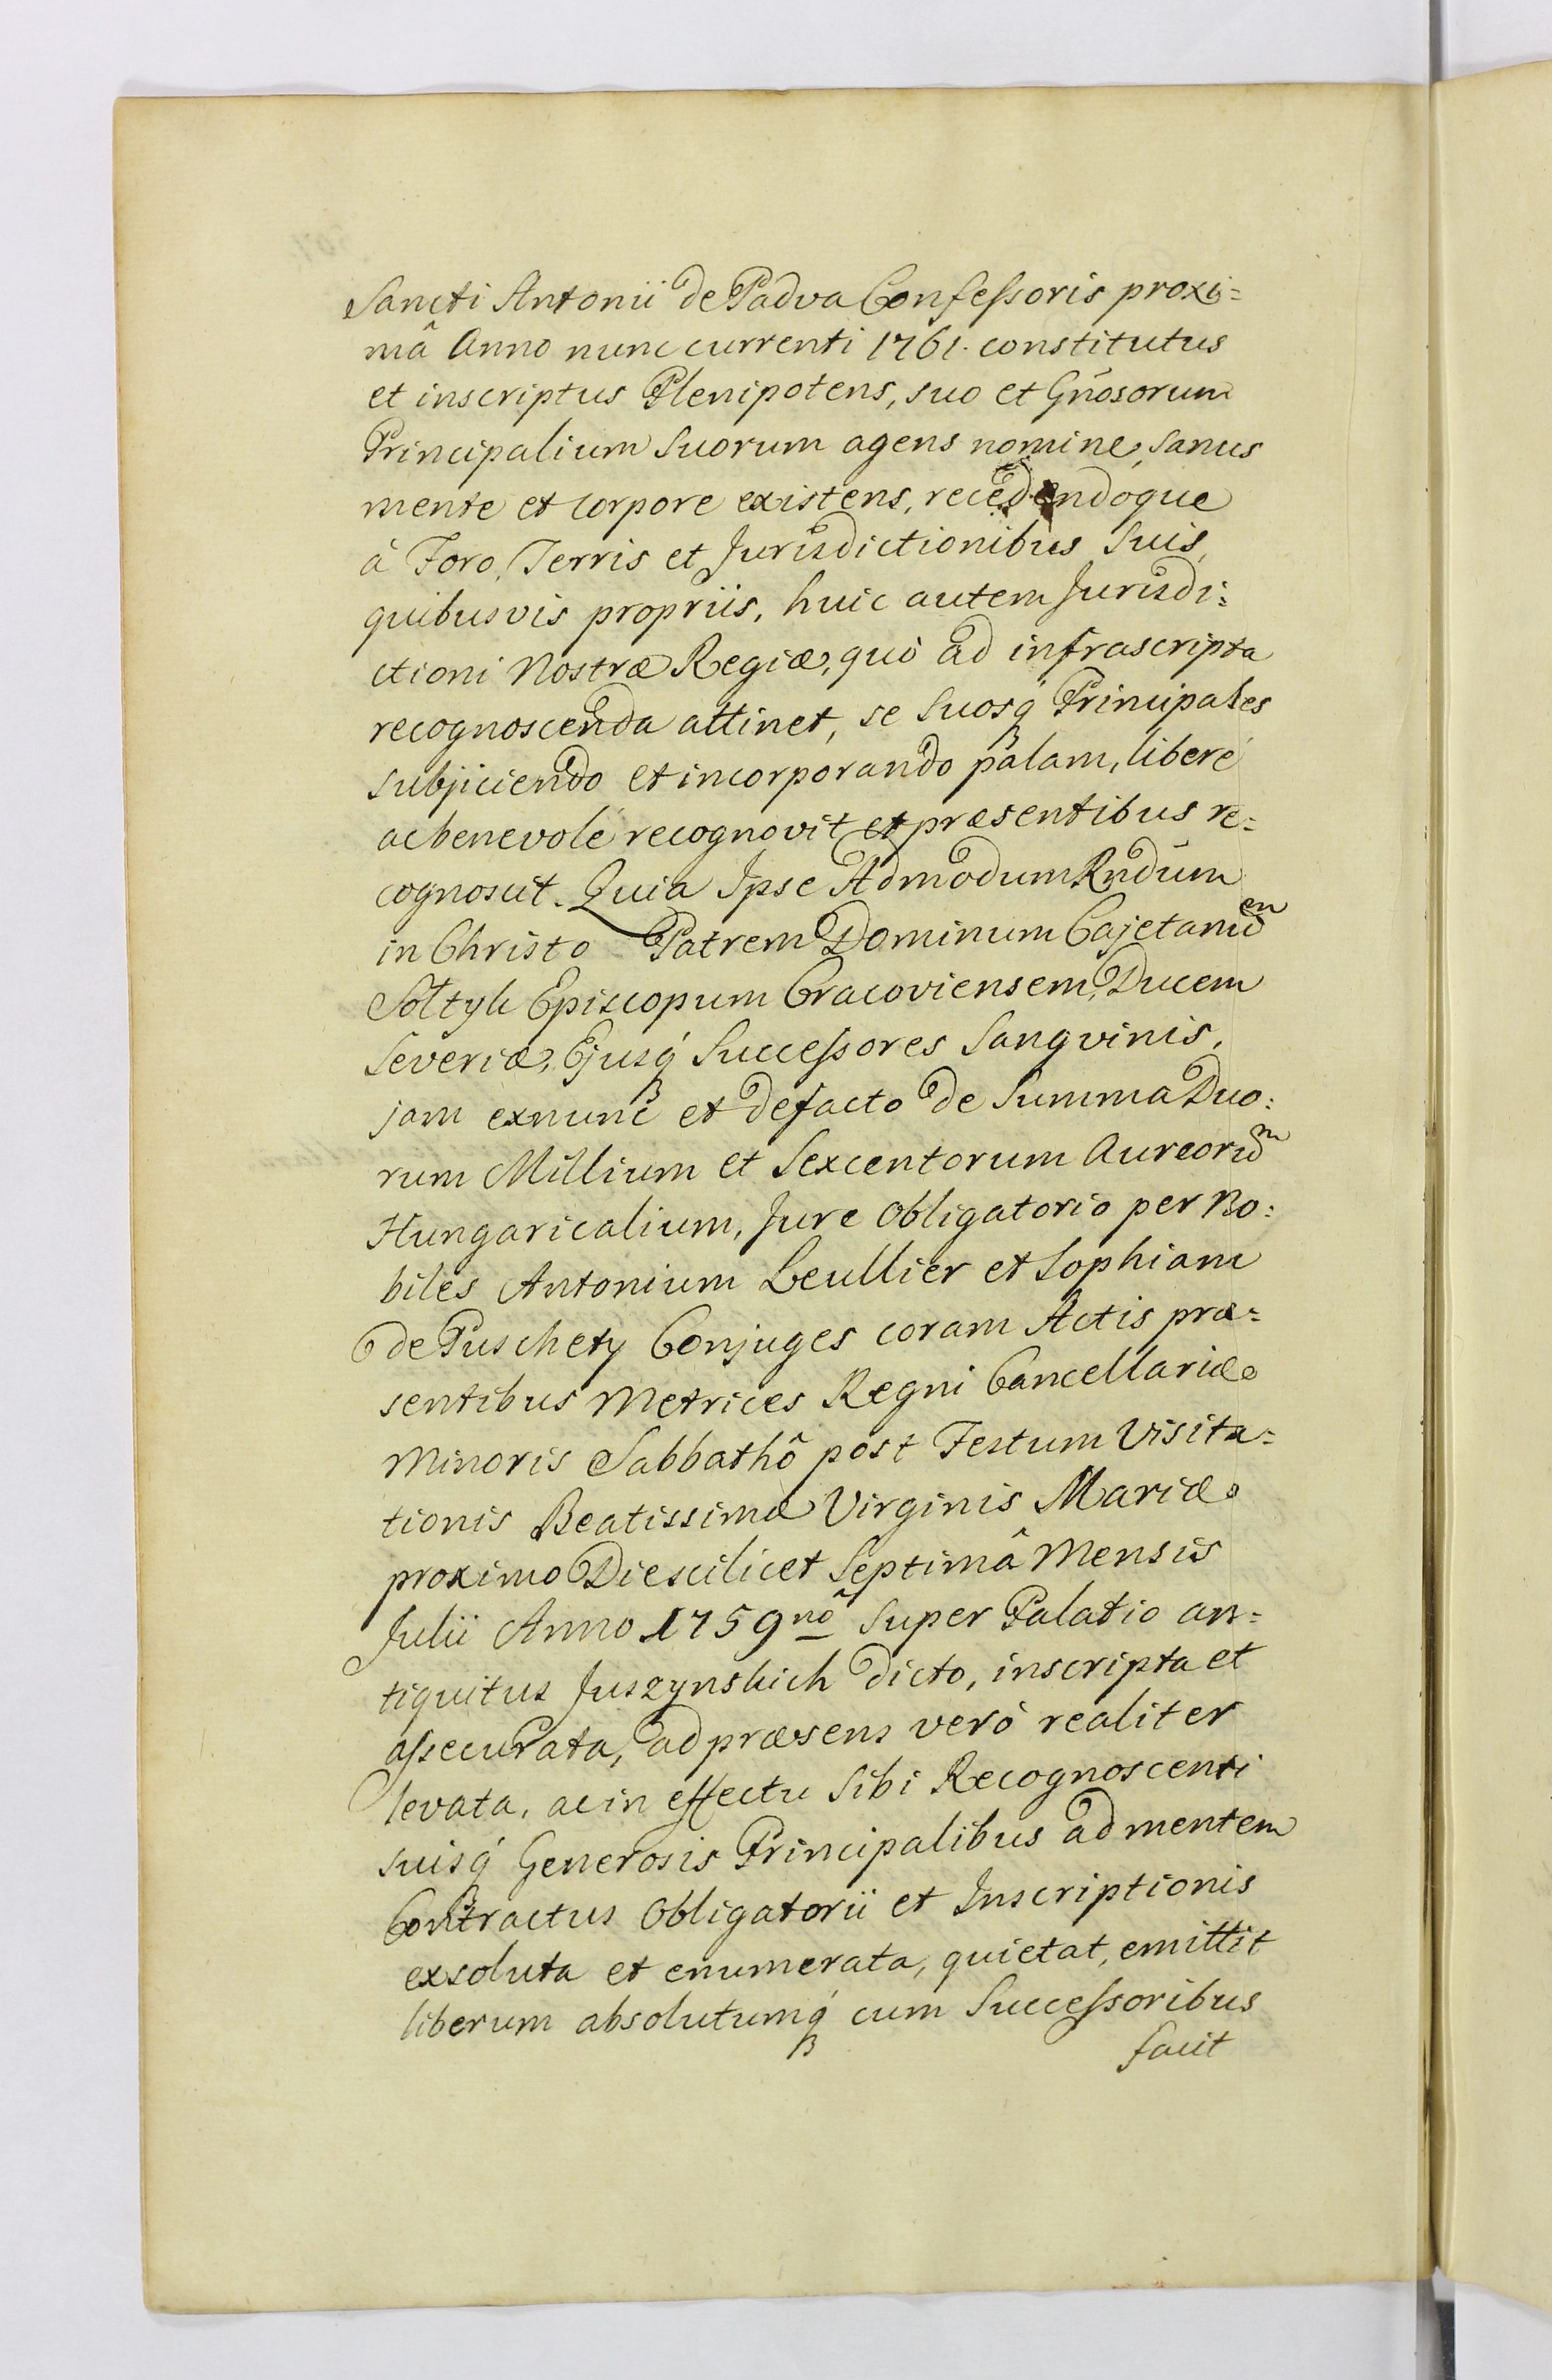 Sancti Antonii de Padva Confessoris proxi=
mâ Anno nunc currenti 1761. constitutus
et inscriptus Plenipotens, suo et Gnosorum
Principalium Suorum agens nomine, sanus
mente et corpore existens, recedendoque
à Foro, Terris et Jurisdictionibus Suis,
quibusvis propriis, huic autem Jurisdi=
ctioni Nostræ Regiæ, quò ad infrascripta
recognoscenda attinet, se Suosq́ Principales
subjiciendo et incorporando palam, liberé
ac benevolé recognovit et præsentibus re=
cognoscit. Quia Ipse Admodum Rndum
in Christo Patrem Dominum Cajetanum
Sołtyk Episcopum Cracoviensem, Ducem
Severiæ, Ejusq́ Successores Sangvinis,
jam exnunc et defacto de Summa Duo=
rum Millium et Sexcentorum Aureorum
Hungaricalium, Jure Obligatorio per No=
biles Antonium Leullier et Sophiam
de Puschety Conjuges coram Actis præ=
sentibus Metrices Regni Cancellariæ
Minoris Sabbathô post Festum Visita=
tionis Beatissimæ Virginis Mariæ
proximo Die scilicet Septimâ Mensis
Julii Anno 1759nô Super Palatio an=
tiquitus Juszynskich dicto, inscripta et
assecurata, ad præsens verò realiter
levata, ac in effectu Sibi Recognoscenti
suisq́ Generosis Principalibus ad mentem
Contractus Obligatorii et Inscriptionis
exsoluta et enumerata, quietat, emittit
liberum absolutumq́ cum Successoribus
facit